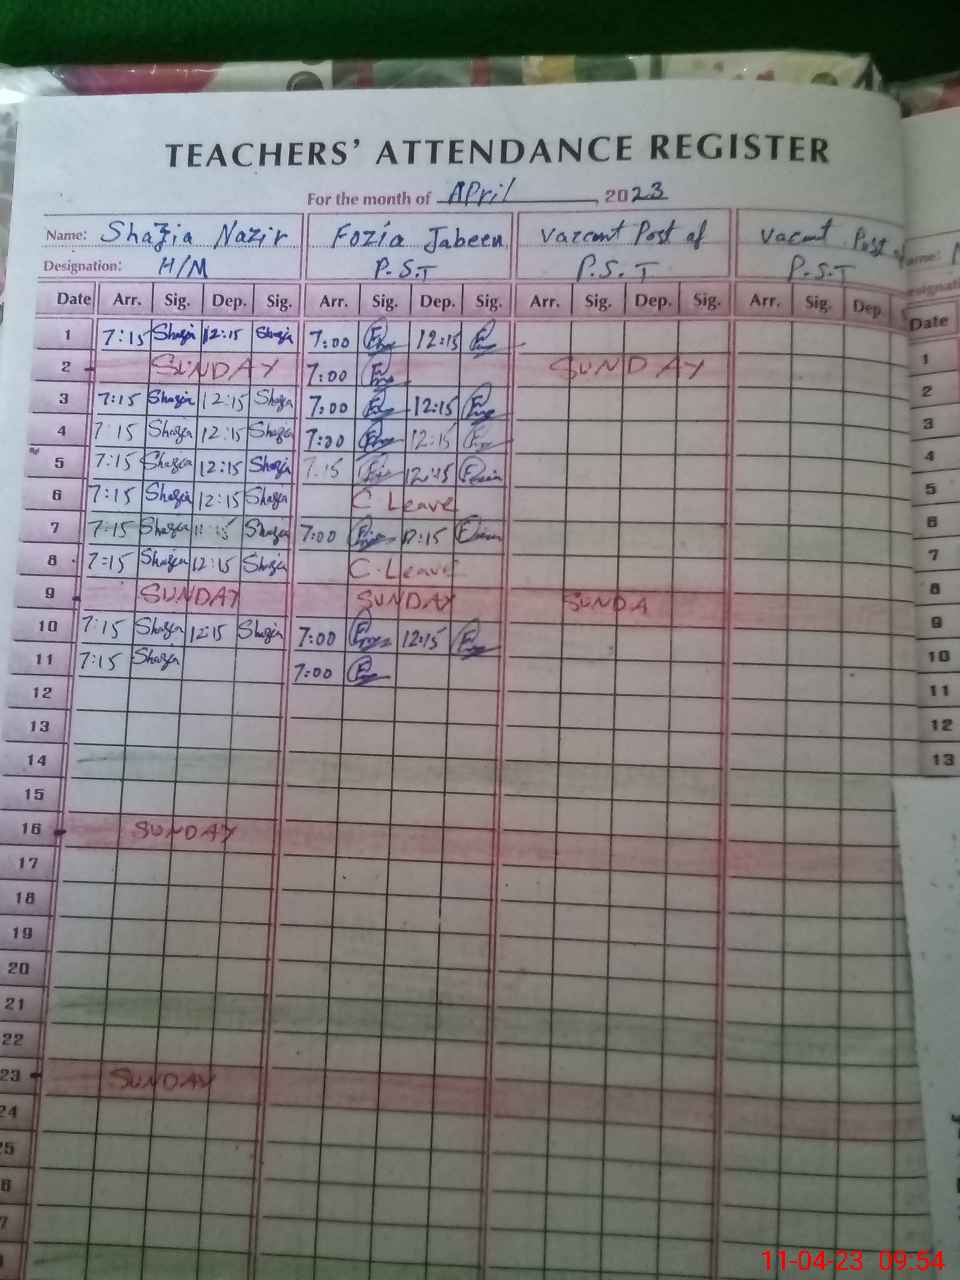 TEACHERS' ATTENDANCE REGISTER
For the month of April, 2023
Name: Shazia Nazir Fozia Jabeen Varcant Post of Vacant Post
Designation: H/M P.S.T P.S.T P.S.T
Date Arr. Sig. Dep. Sig. Arr. Sig. Dep. Sig. Arr. Sig. Dep. Sig. Arr. Sig. Dep. Date
1 7:15 Shazia 12:15 Shazia 7:00 12:15 1
2 SUNDAY 7:00 SUNDAY 2
3 7:15 Shazia 12:15 Shazia 7:00 12:15 3
4 7:15 Shazia 12:15 Shazia 7:00 12:15 4
5 7:15 Shazia 12:15 Shazia 7:15 12:15 5
6 7:15 Shazia 12:15 Shazia C Leave 6
7 7:15 Shazia Shazia 7:00 12:15 7
8 7:15 Shazia 12:15 Shazia C.Leave 8
9 SUNDAY SUNDAY SUNDA 9
10 7:15 Shazia 12:15 Shazia 7:00 12:15 10
11 7:15 Shazia 7:00 11
12 12
13 13
14
15
16 SUNDAY
17
18
19
20
21
22
23 SUNDAY
24
11-04-23 09:54